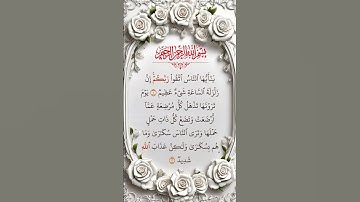 بِسْمِ اللَّهِ الرَّحْمَٰنِ الرَّحِيمِ
يَٰٓأَيُّهَا ٱلنَّاسُ ٱتَّقُوا۟ رَبَّكُمْ ۚ إِنَّ
زَلْزَلَةَ ٱلسَّاعَةِ شَىْءٌ عَظِيمٌ ١ يَوْمَ
تَرَوْنَهَا تَذْهَلُ كُلُّ مُرْضِعَةٍ عَمَّآ
أَرْضَعَتْ وَتَضَعُ كُلُّ ذَاتِ حَمْلٍ
حَمْلَهَا وَتَرَى ٱلنَّاسَ سُكَٰرَىٰ وَمَا
هُم بِسُكَٰرَىٰ وَلَٰكِنَّ عَذَابَ ٱللَّهِ
شَدِيدٌ ٢